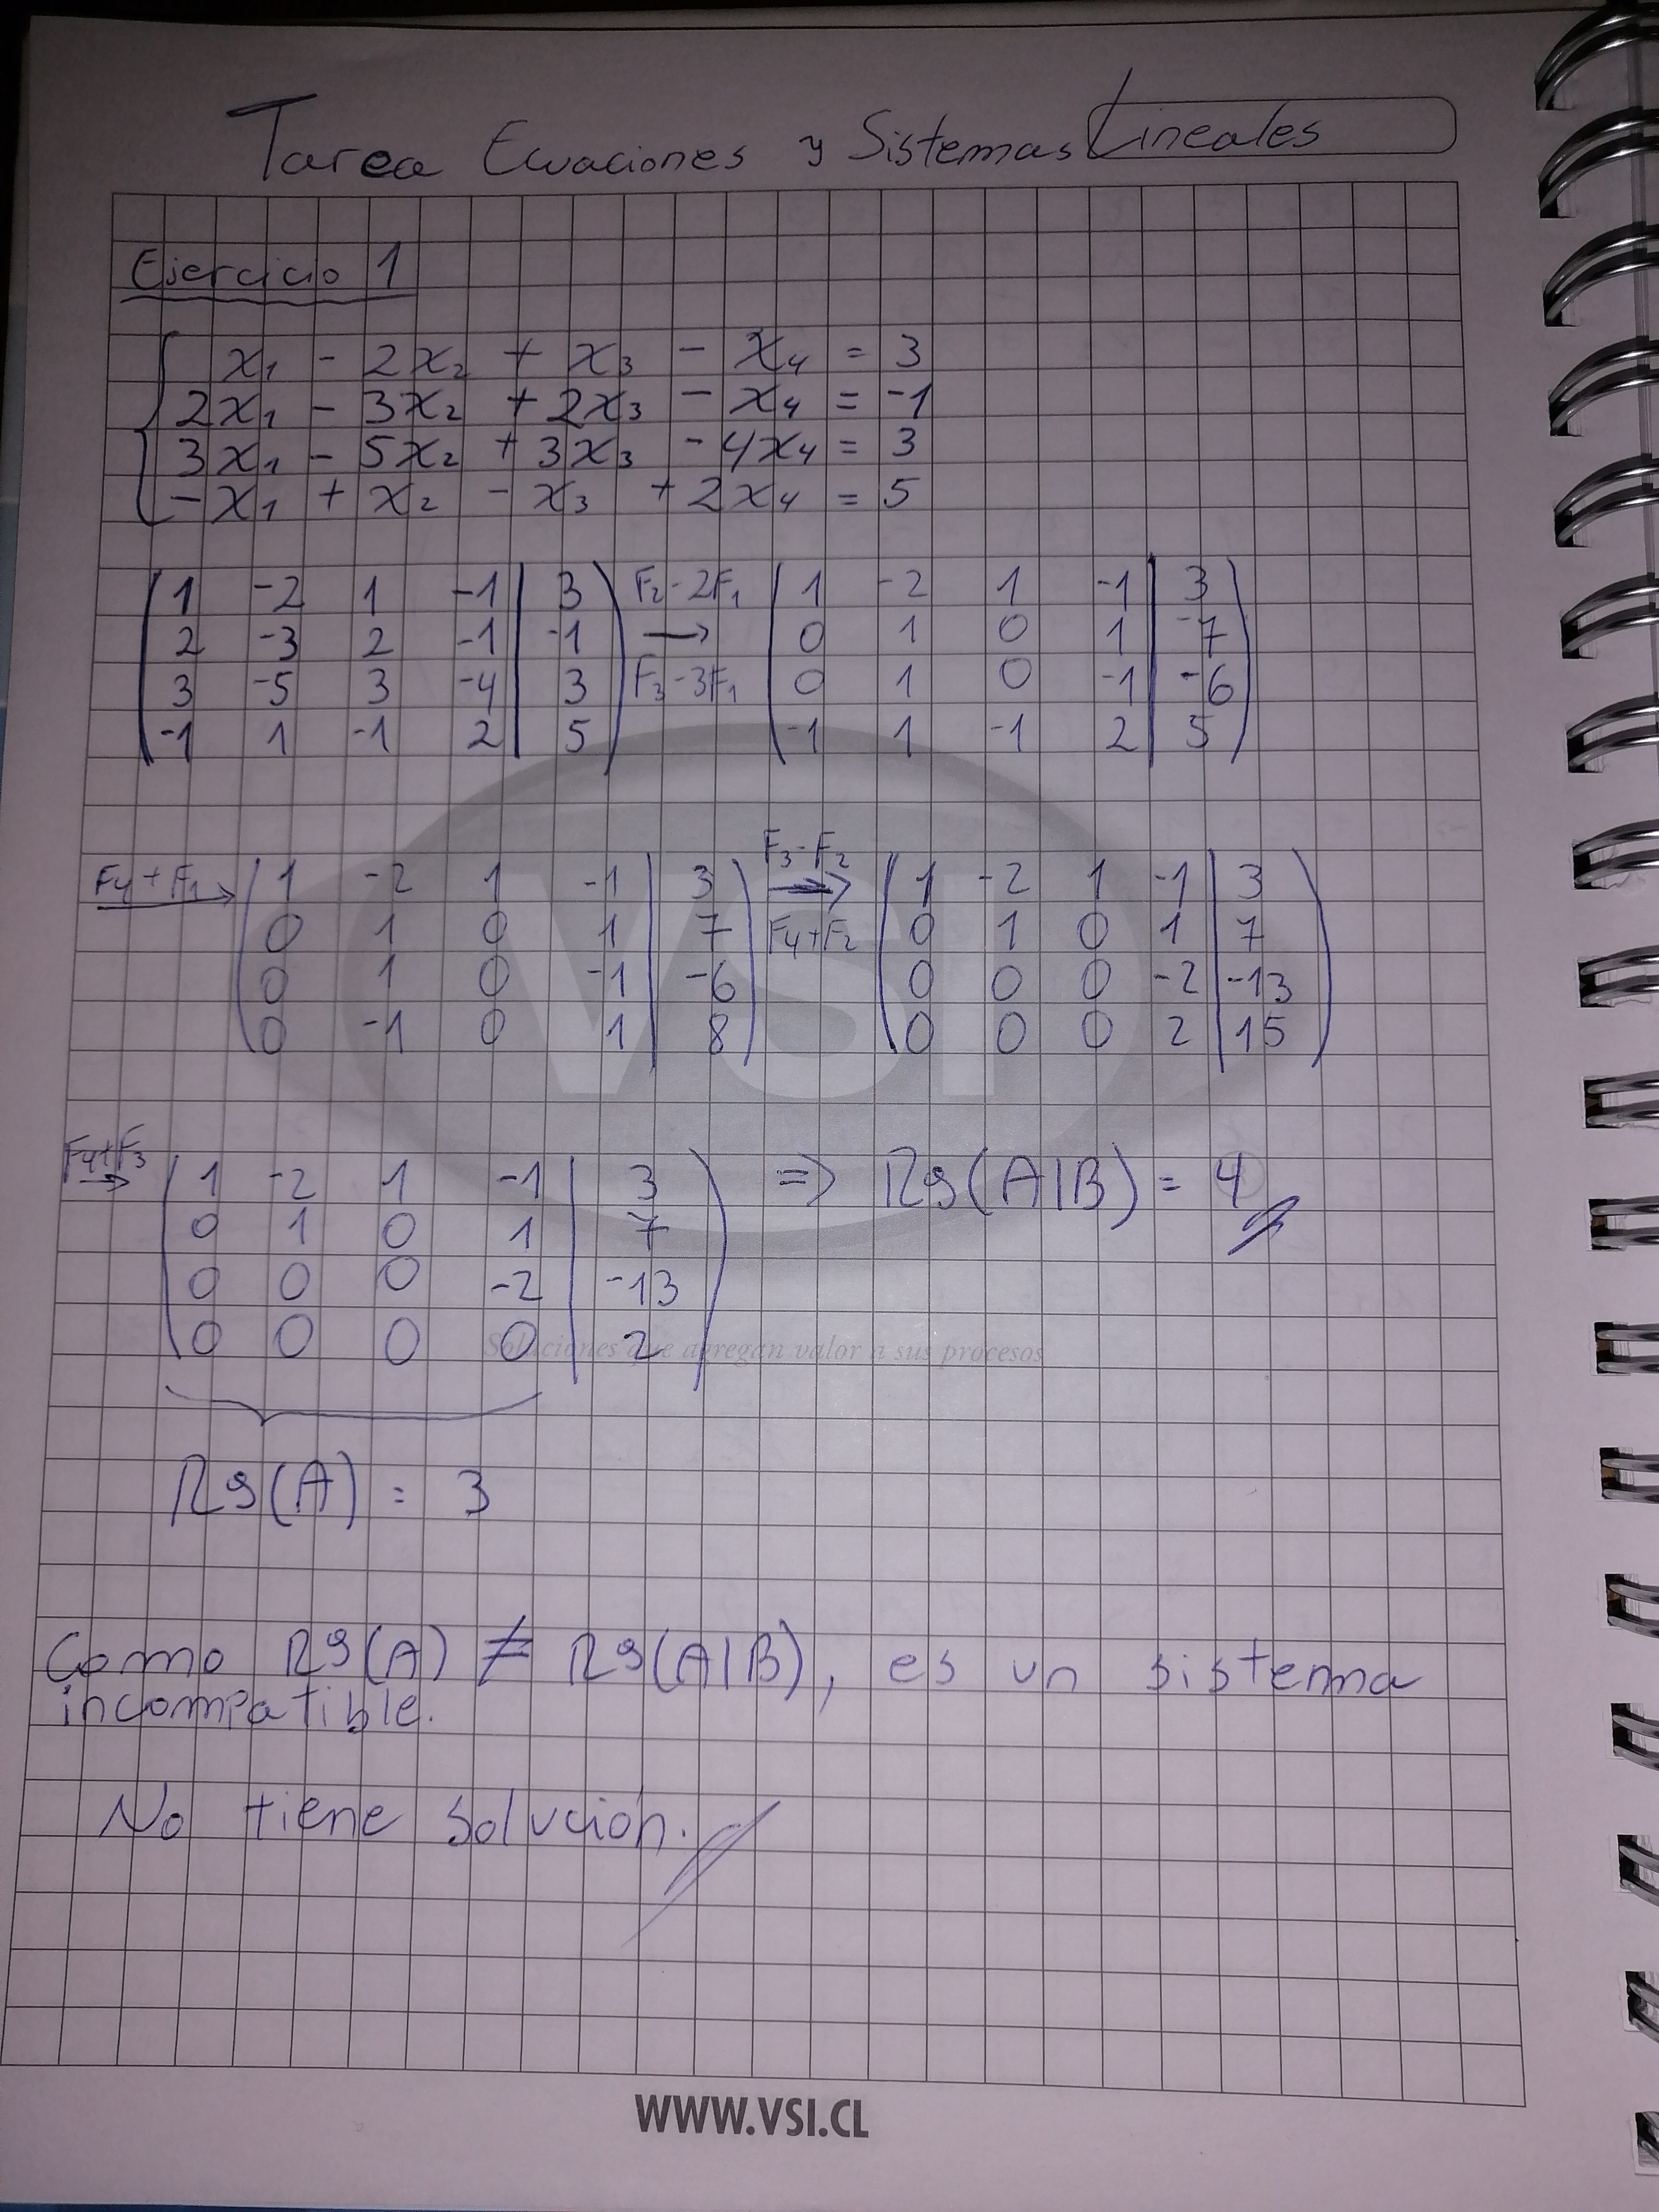 Tarea Ecuaciones y Sistemas Lineales
Ejercicio 1
x₁ - 2x₂ + x₃ - x₄ = 3
2x₁ - 3x₂ + 2x₃ - x₄ = -1
3x₁ - 5x₂ + 3x₃ - 4x₄ = 3
-x₁ + x₂ - x₃ + 2x₄ = 5
1 -2 1 -1 | 3 F₂-2F₁ 1 -2 1 -1 | 3
2 -3 2 -1 | -1 → 0 1 0 1 | -7
3 -5 3 -4 | 3 F₃-3F₁ 0 1 0 -1 | -6
-1 1 -1 2 | 5 -1 1 -1 2 | 5
F₄+F₁ → 1 -2 1 -1 | 3 F₃-F₂ → 1 -2 1 -1 | 3
0 1 0 1 | 7 F₄+F₂ 0 1 0 1 | 7
0 1 0 -1 | -6 0 0 0 -2 | -13
0 -1 0 1 | 8 0 0 0 2 | 15
F₄+F₃ → 1 -2 1 -1 | 3 => Rg(A|B) = 4
0 1 0 1 | 7
0 0 0 -2 | -13
0 0 0 0 | 2
Soluciones que agregan valor a sus procesos
VSI
Rg(A) = 3
Como Rg(A) ≠ Rg(A|B), es un sistema
incompatible.
No tiene solución.
WWW.VSI.CL